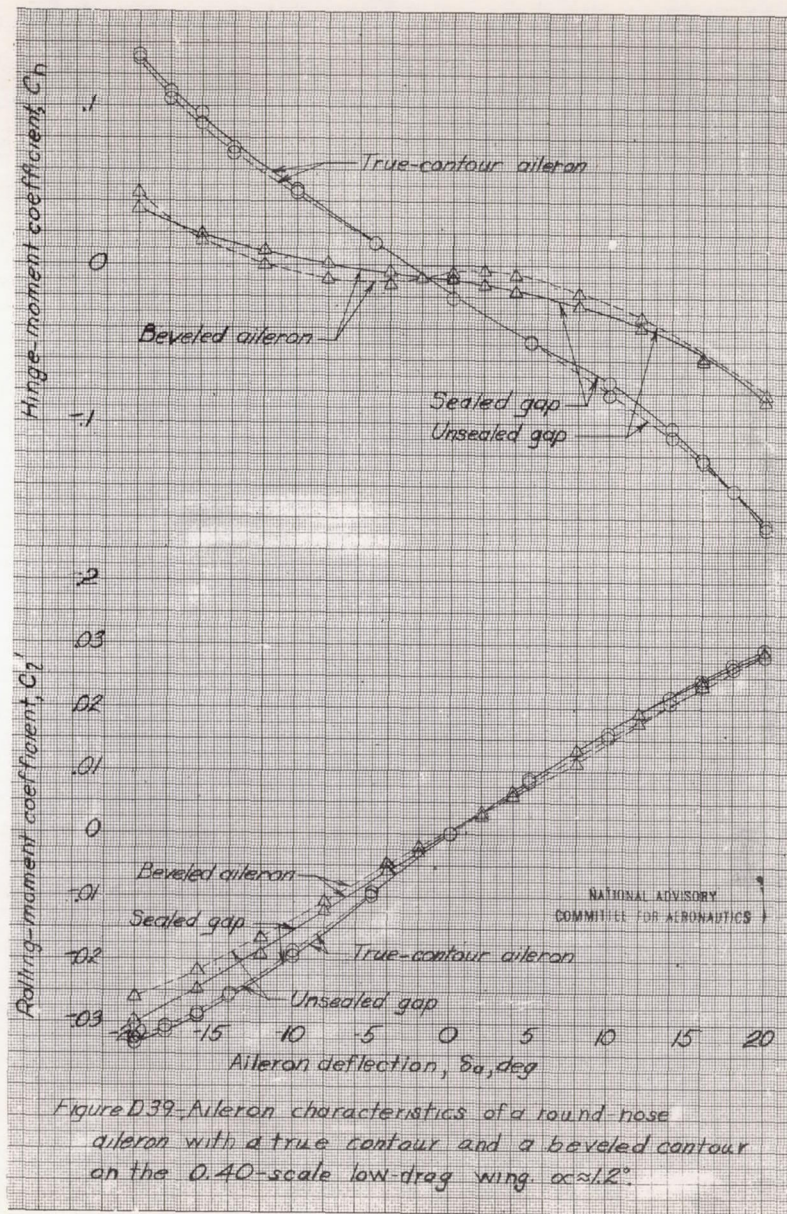 Hinge-moment coefficient, Ch
.1
0
-.1
-.2
True-contour aileron
Beveled aileron
Sealed gap
Unsealed gap
Rolling-moment coefficient, Cl'
.03
.02
.01
0
-.01
-.02
-.03
Beveled aileron
Sealed gap
True-contour aileron
Unsealed gap
NATIONAL ADVISORY
COMMITTEE FOR AERONAUTICS
-20 -15 -10 -5 0 5 10 15 20
Aileron deflection, δa, deg
Figure D39.-Aileron characteristics of a round nose
aileron with a true contour and a beveled contour
on the 0.40-scale low-drag wing. α≈1.2°.